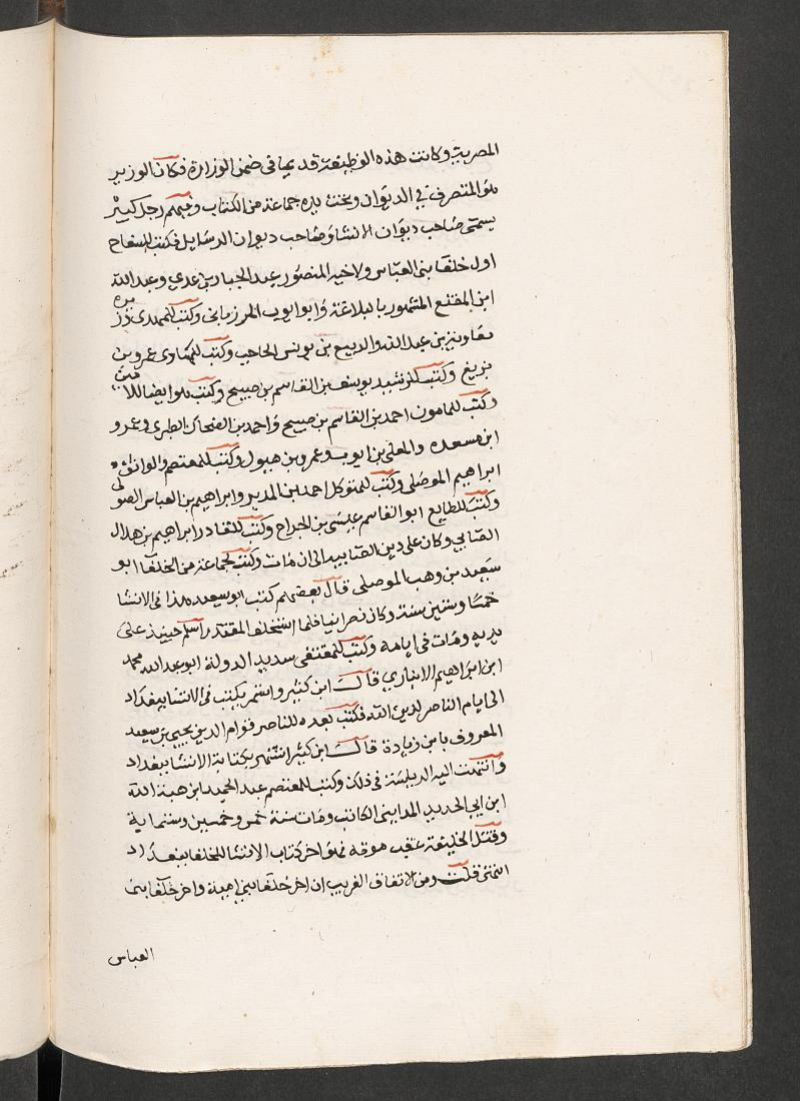 المصرية وكانت هذه الوظيفة قديما في ضمن الوزارة فكان الوزير
هو المتصرف في الديوان وتحت يده جماعة من الكتاب وفيهم رجل كبير
يسمى صاحب ديوان الانشا وصاحب ديوان الرسايل فكتب للسفاح
اول خلفا بنى العباس ولاخيه المنصور عبد الجبار بن عدي وعبد الله
ابن المقفع المشهور بالبلاغة وابوايوب المرزبانى وكتب للمهدى وزيره
معاوية بن عبد الله والربيع بن يونس الحاجب وكتب للهادى عمرو بن
بزيغ وكتب للرشيد يوسف بن القاسم بن صبيح وكتب هو ايضا للامين
وكتب للمامون احمد بن القاسم بن صبيح واحمد بن الضحاك الطبرى وعمرو
ابن مسعده والمعلى بن ايوب وعمرو بن هبول وكتب للمعتصم والواثق
ابراهيم الموصلى وكتب للمتوكل احمد بن المدبر وابراهيم بن العباس الصولى
وكتب للطايع ابو القاسم عيسى بن الجراح وكتب للقادر ابراهيم بن هلال
الصابي وكان على دين الصابيه الى ان مات وكتب لجماعة من الخلفا ابو
سعيد بن وهب الموصلى قال بعضهم كتب ابو سعيد هذا فى الانشا
خمسا وستين سنة وكان نصرانيا فلما استخلف المقتدر اسلم حينيذ على
يديه ومات فى ايامه وكتب للمقتفى سديد الدولة ابو عبد الله محمد
ابن ابراهيم الانباري قال ابن كثير واستمر يكتب فى الانشا ببغداد
الى ايام الناصر لدين الله فكتب بعده للناصر قوام الدين يحيى بن سعيد
المعروف بابن زيادة قال ابن كثير اشتهر بكتابة الانشا ببغداد
وانتهت اليه الرياسة فى ذلك وكتب للمعتصم عبد الحميد ابن هبة الله
ابن ابى الحديد المداينى الكاتب ومات سنة خمس وخمسين وستماية
وقتل الخليفة عقب موته فهو اخر كتاب الانشا للخلفا ببغداد
انتهى قلت ومن الاتفاق الغريب ان اخر خلفا بني امية واخر خلفا بنى
العباس